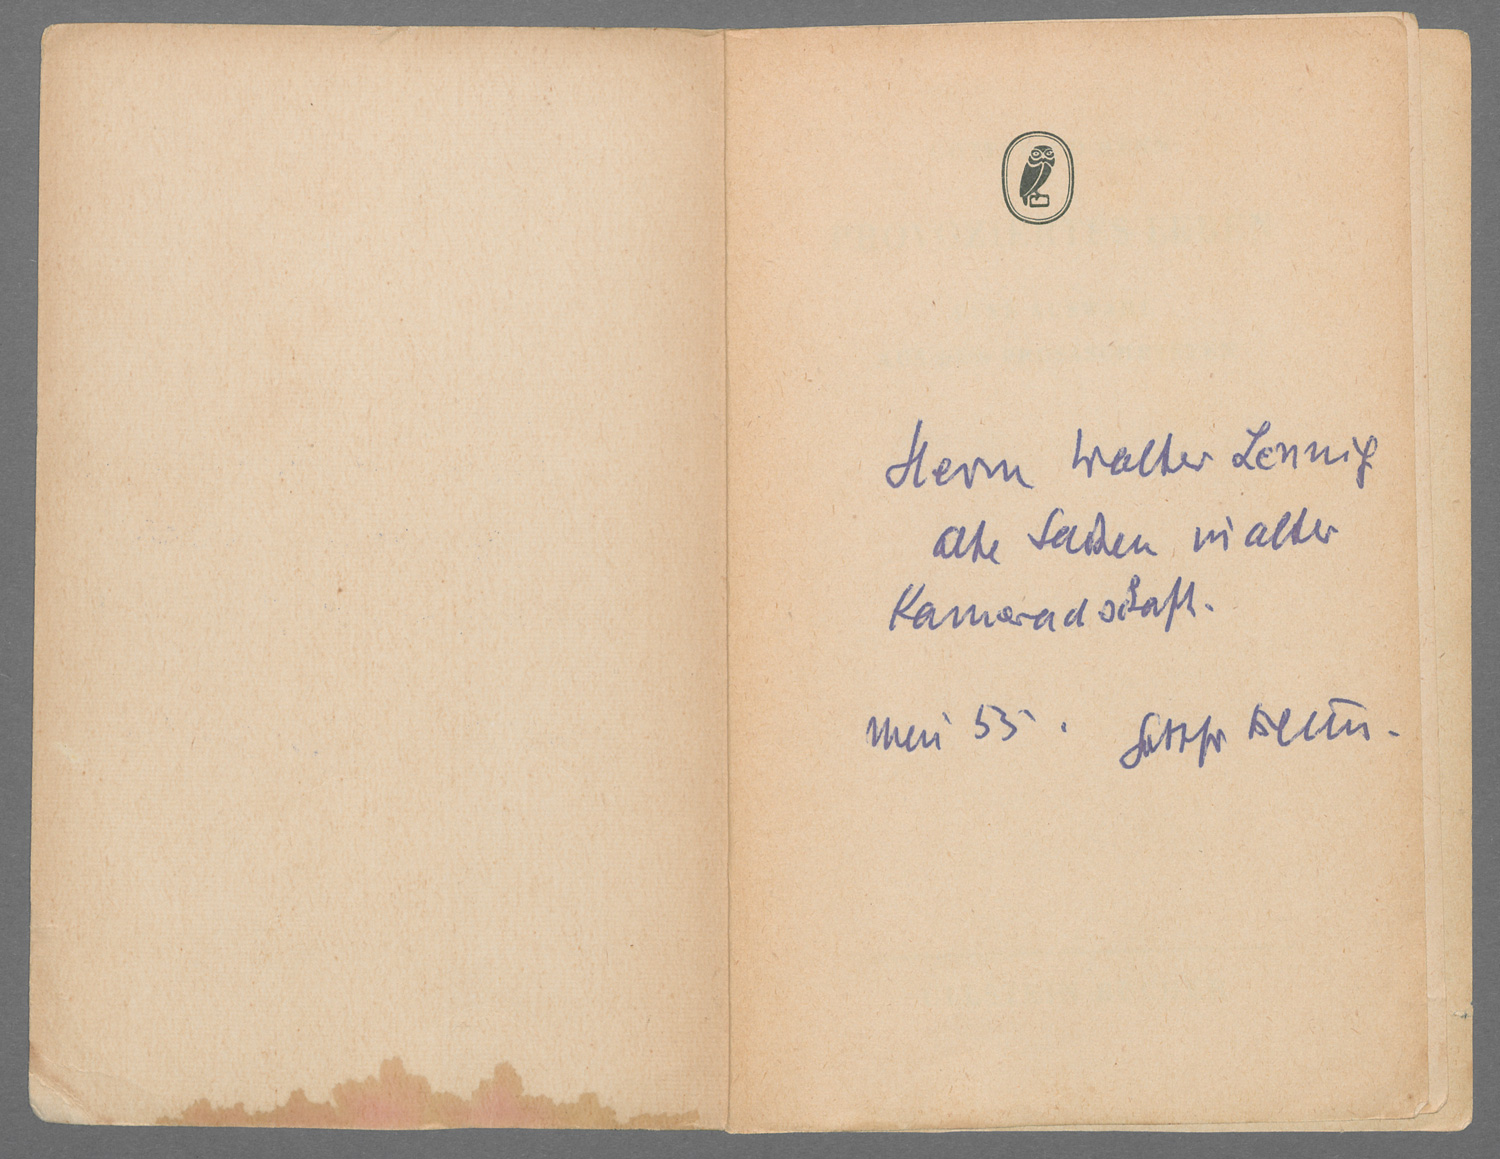 Herrn Walter Lennig
alte Sachen in alter
Kameradschaft.
Mai 55. Gottfr Benn.